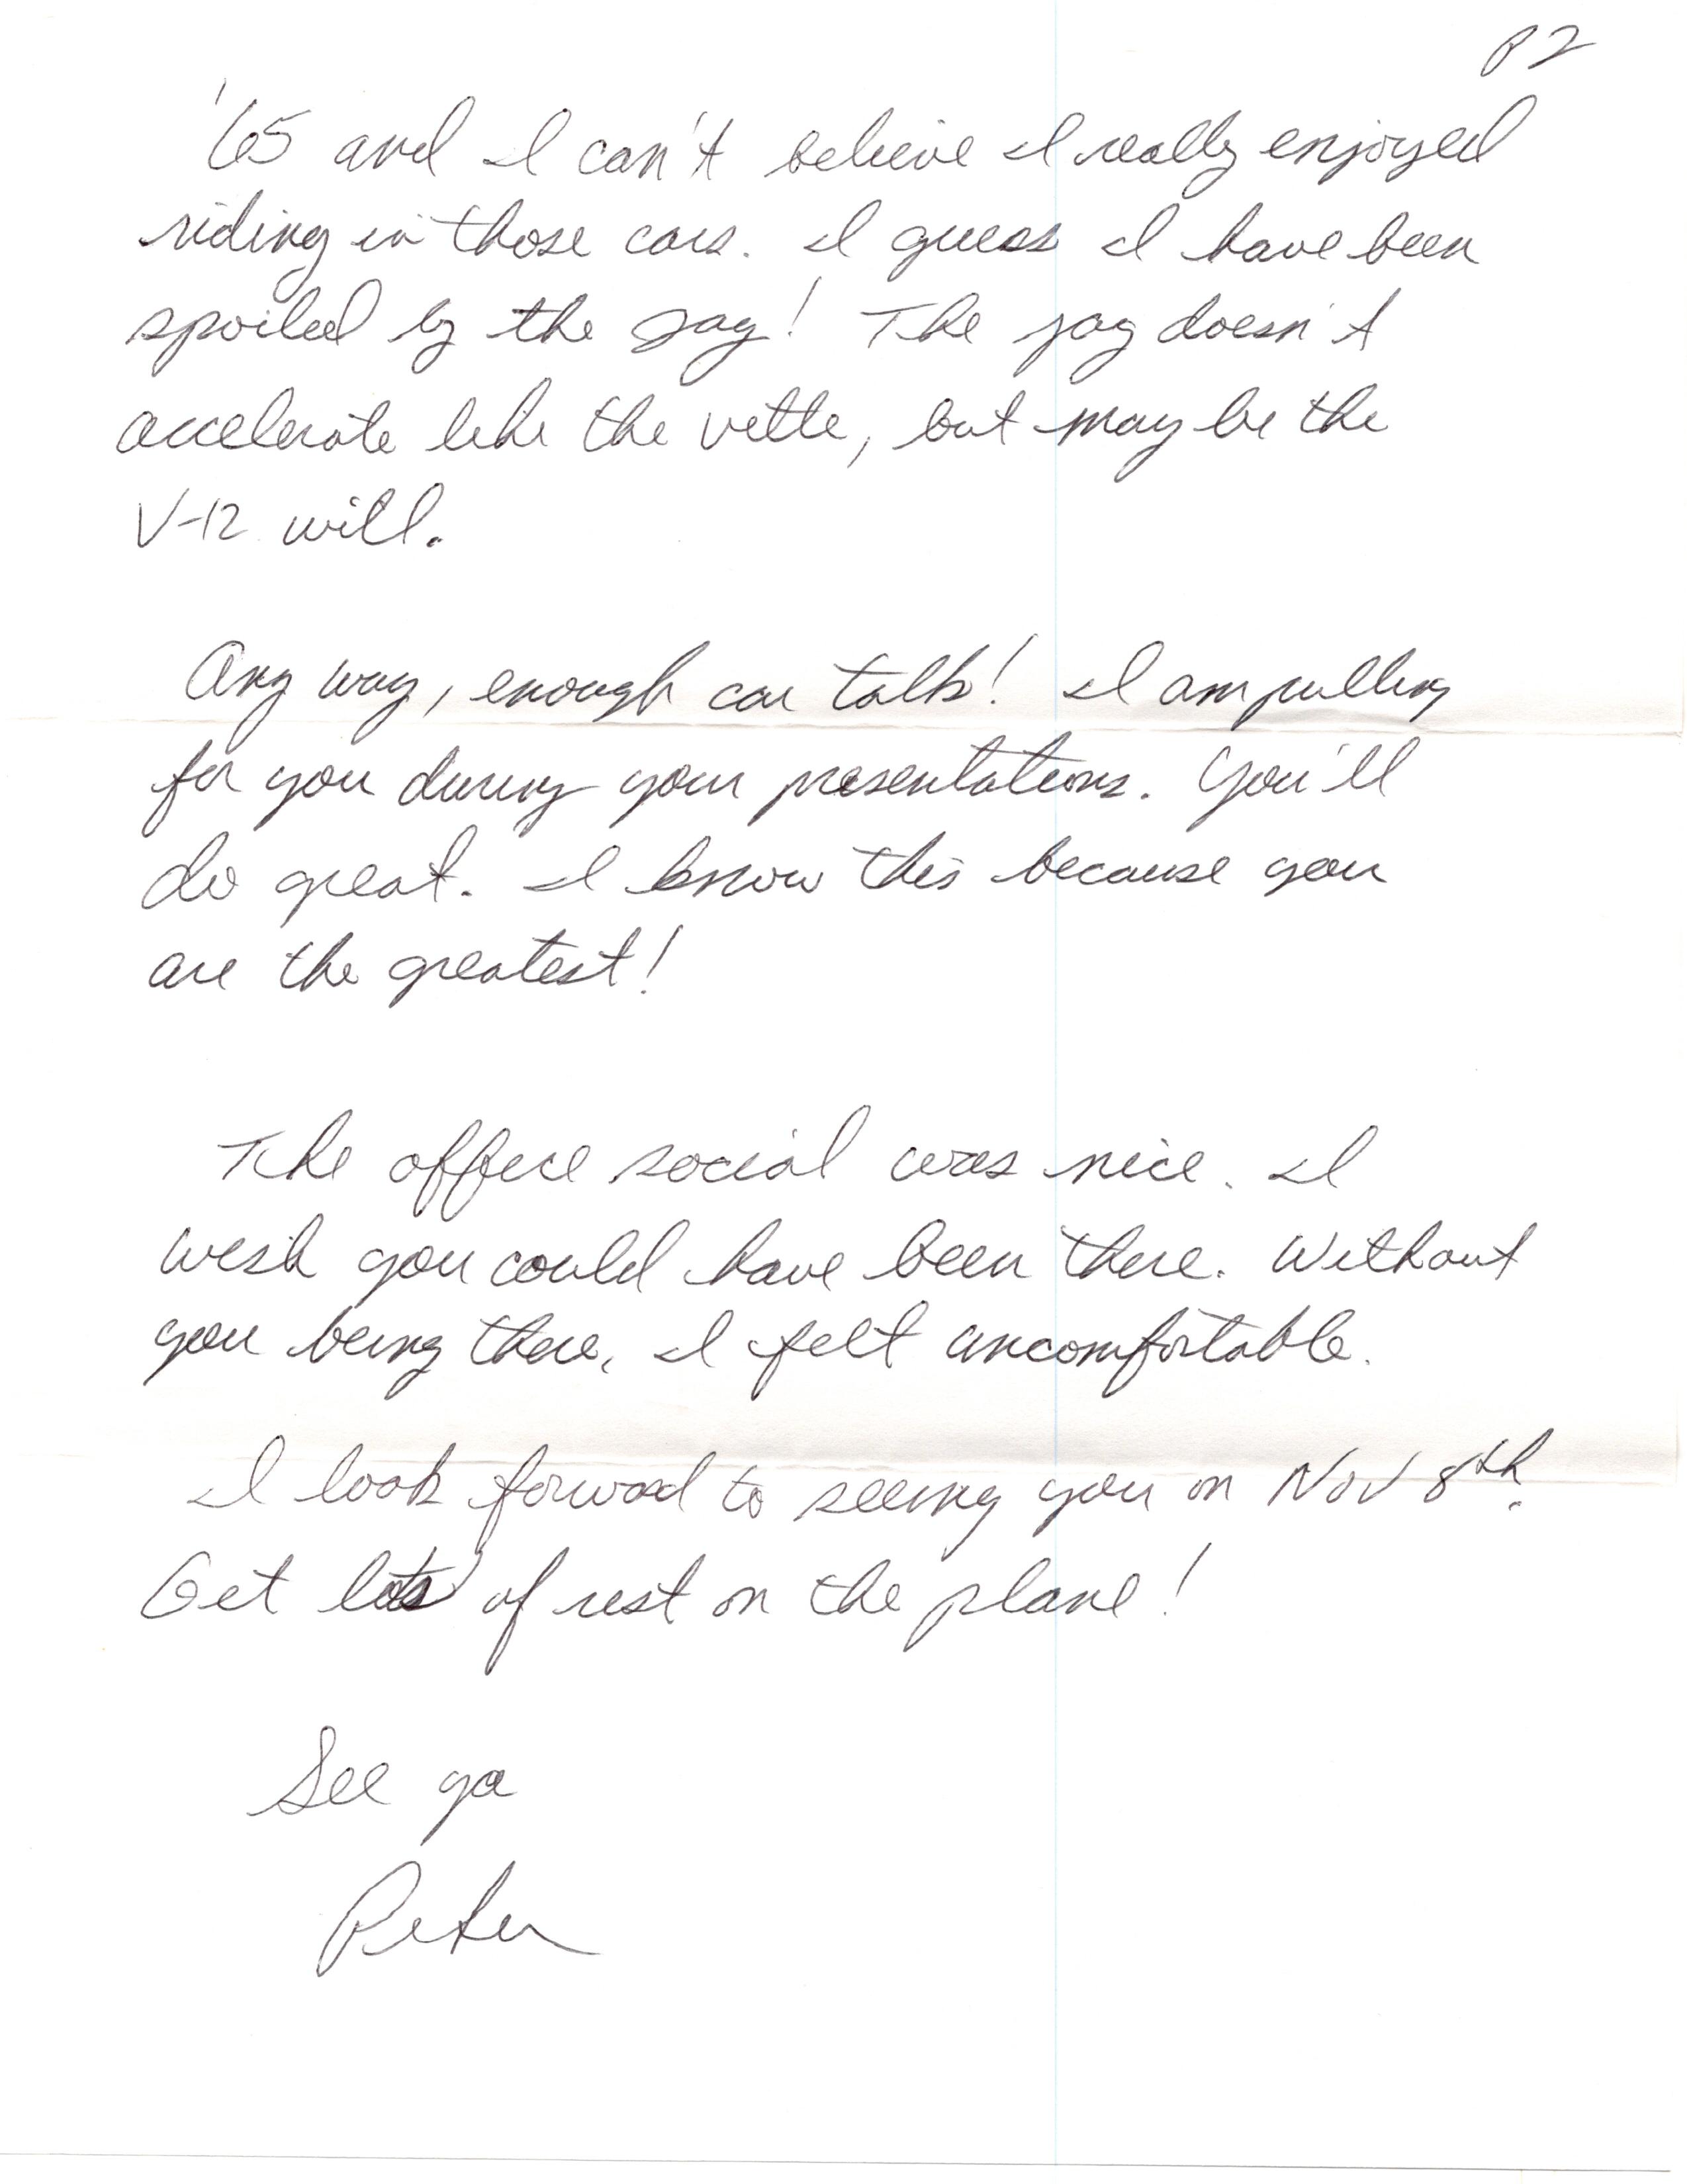 P2
'65 and I can't believe I really enjoyed
riding in those cars. I guess I have been
spoiled by the Jag! The jag doesn't
accelerate like the vette, but may be the
V-12 will.
Any way, enough car talk! I am pulling
for you during your presentations. You'll
do great. I know this because you
are the greatest!
The office social was nice. I
wish you could have been there. Without
you being there, I felt uncomfortable.
I look forward to seeing you on Nov 8th.
Get lots of rest on the plane!
See ya
Peter